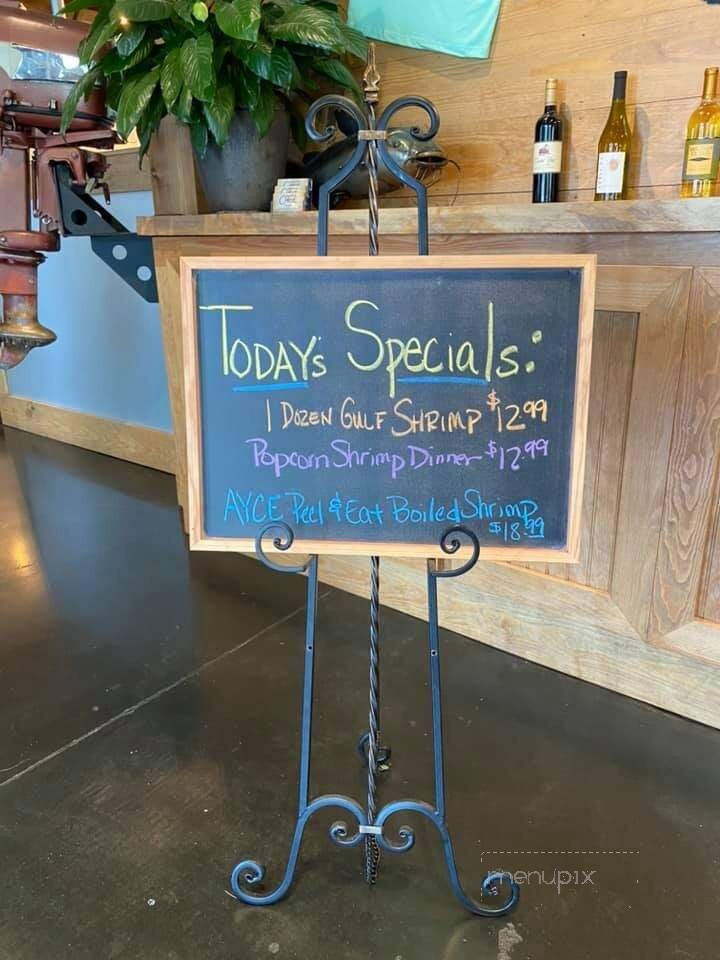 TODAY's Specials:
1 DOZEN GULF SHRIMP $12.99
Popcorn Shrimp Dinner $12.99
AYCE Peel & Eat Boiled Shrimp
$18.99
menupix